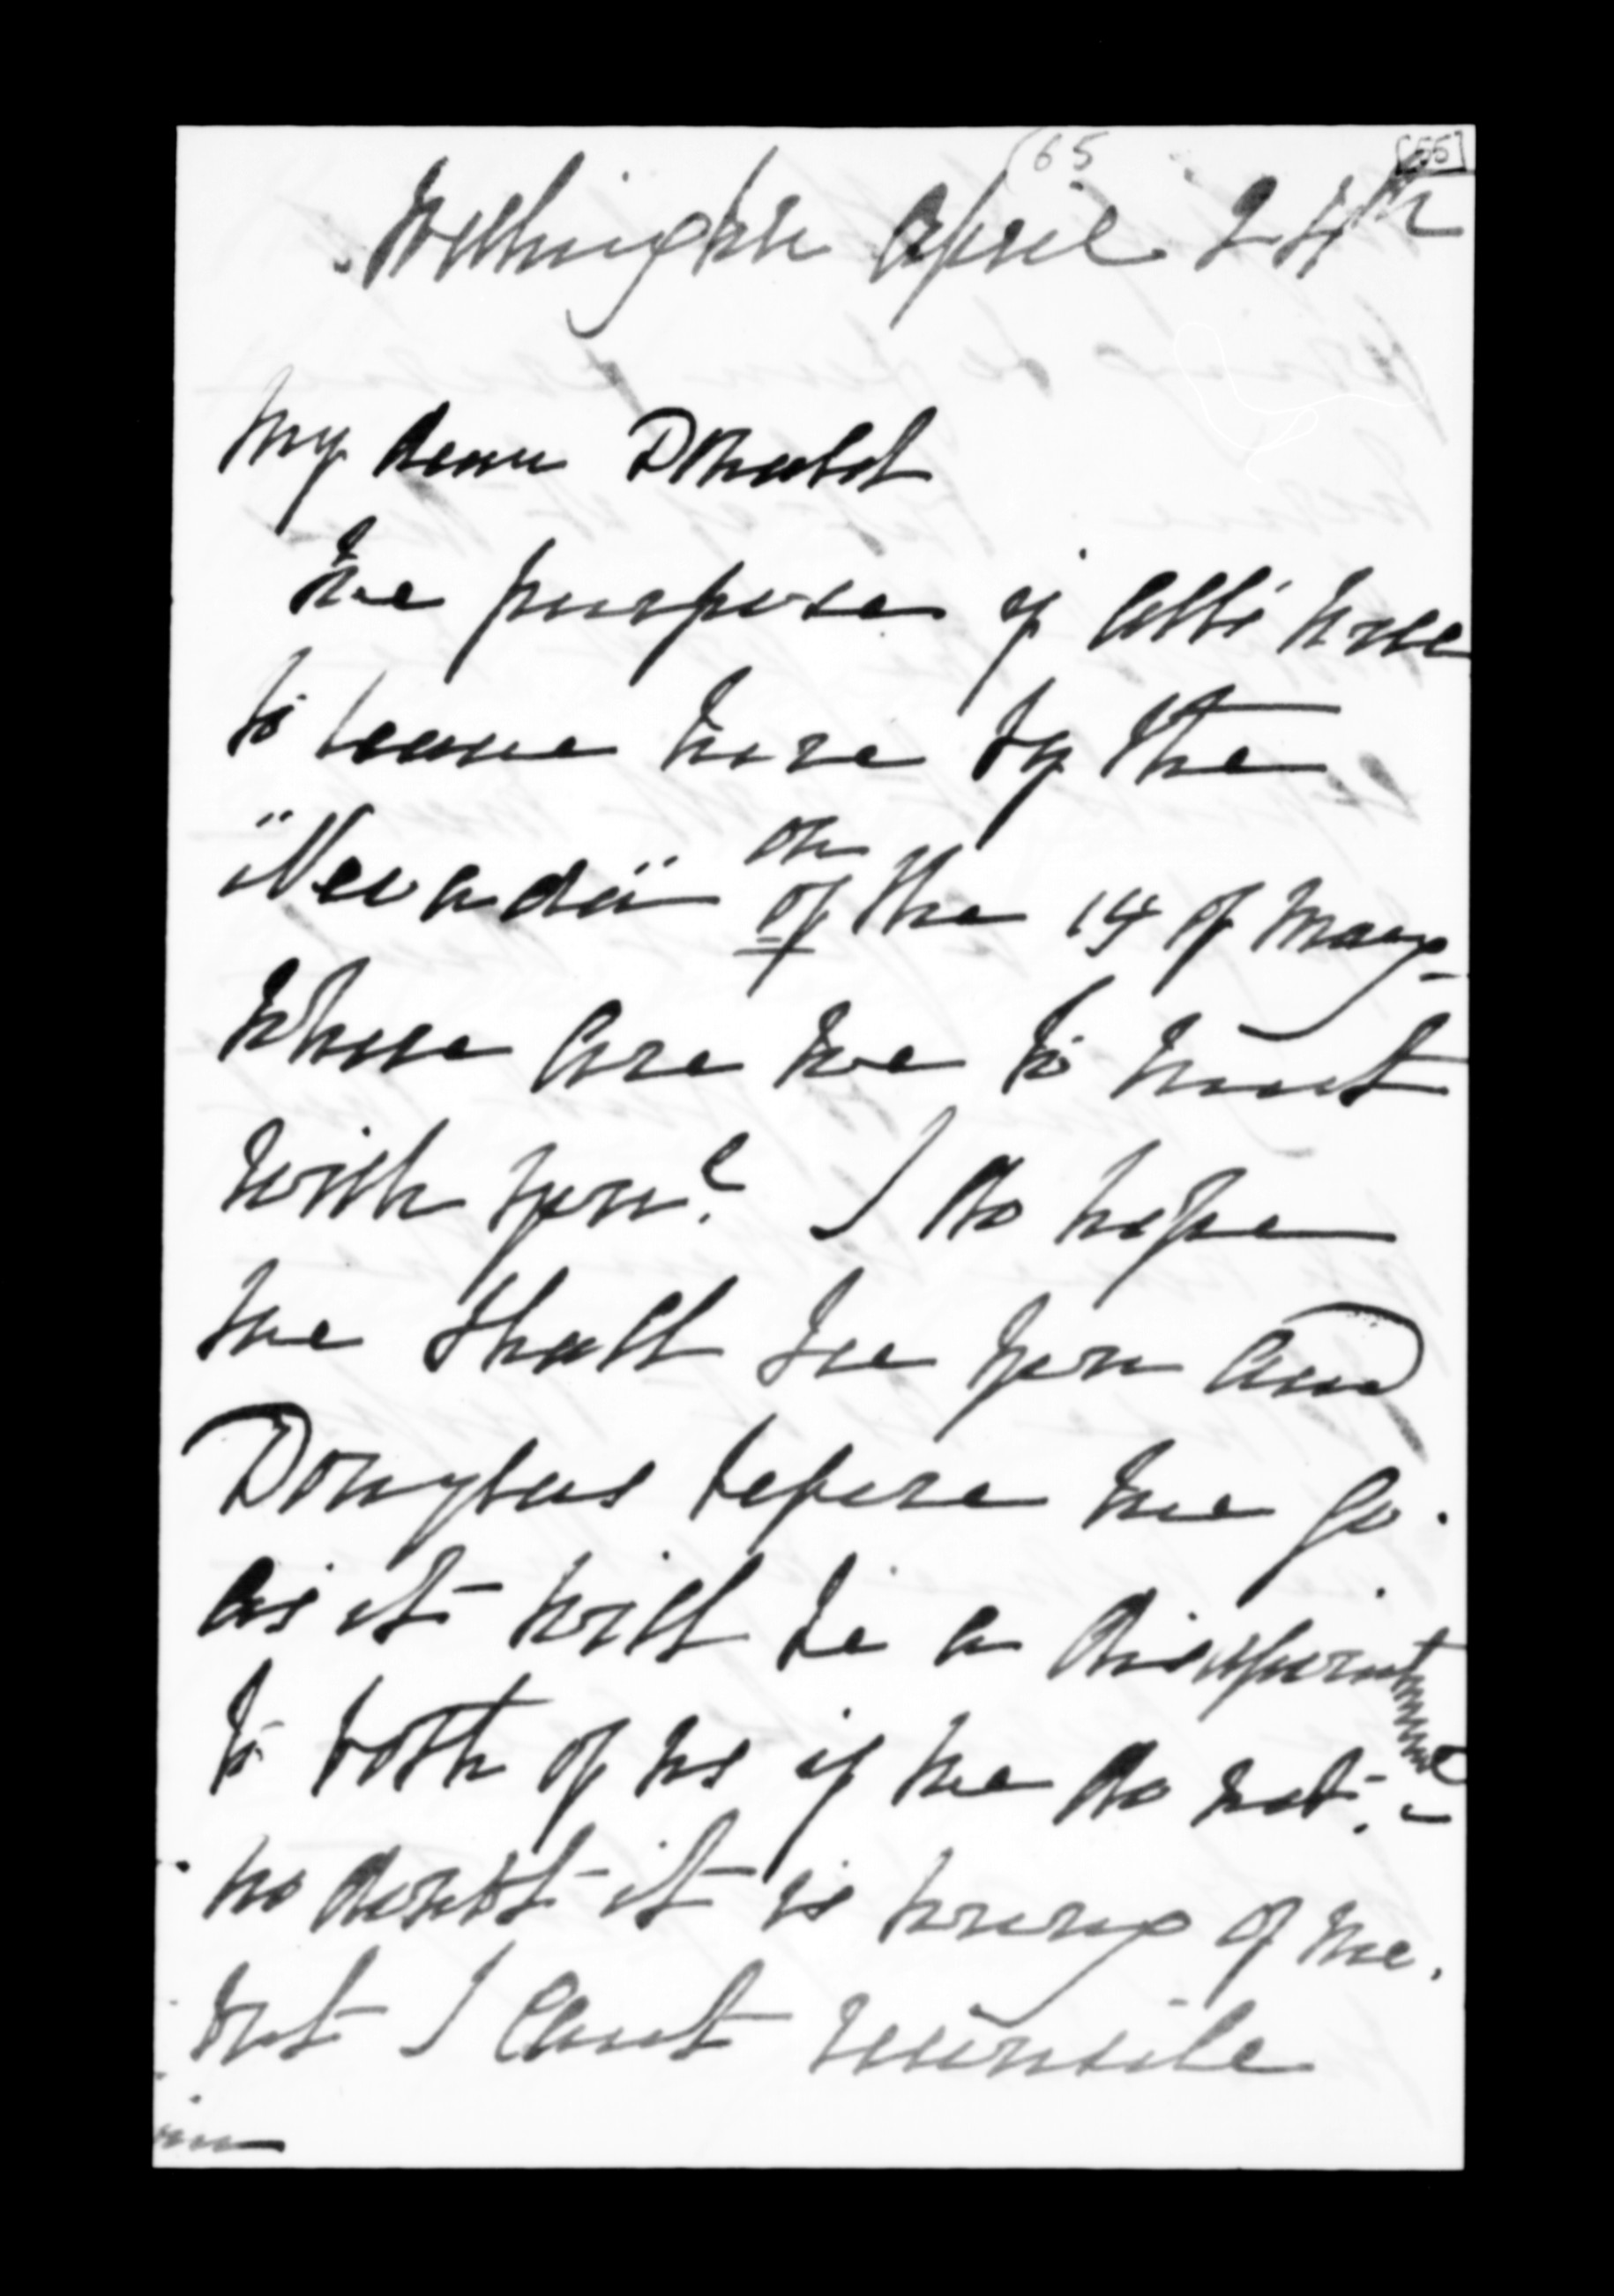 65 [55]
Wellington April 24th
My dear Donald
We purpose if all's well
to leave here by the
"Nevada" on of the 14 of May -
Where are we to meet
with you? I do hope
we shall see you and
Douglas before we go.
as it will be a disapointment
to both of us if we do not. -
no doubt it is wrong of me.
but I cant reconcile